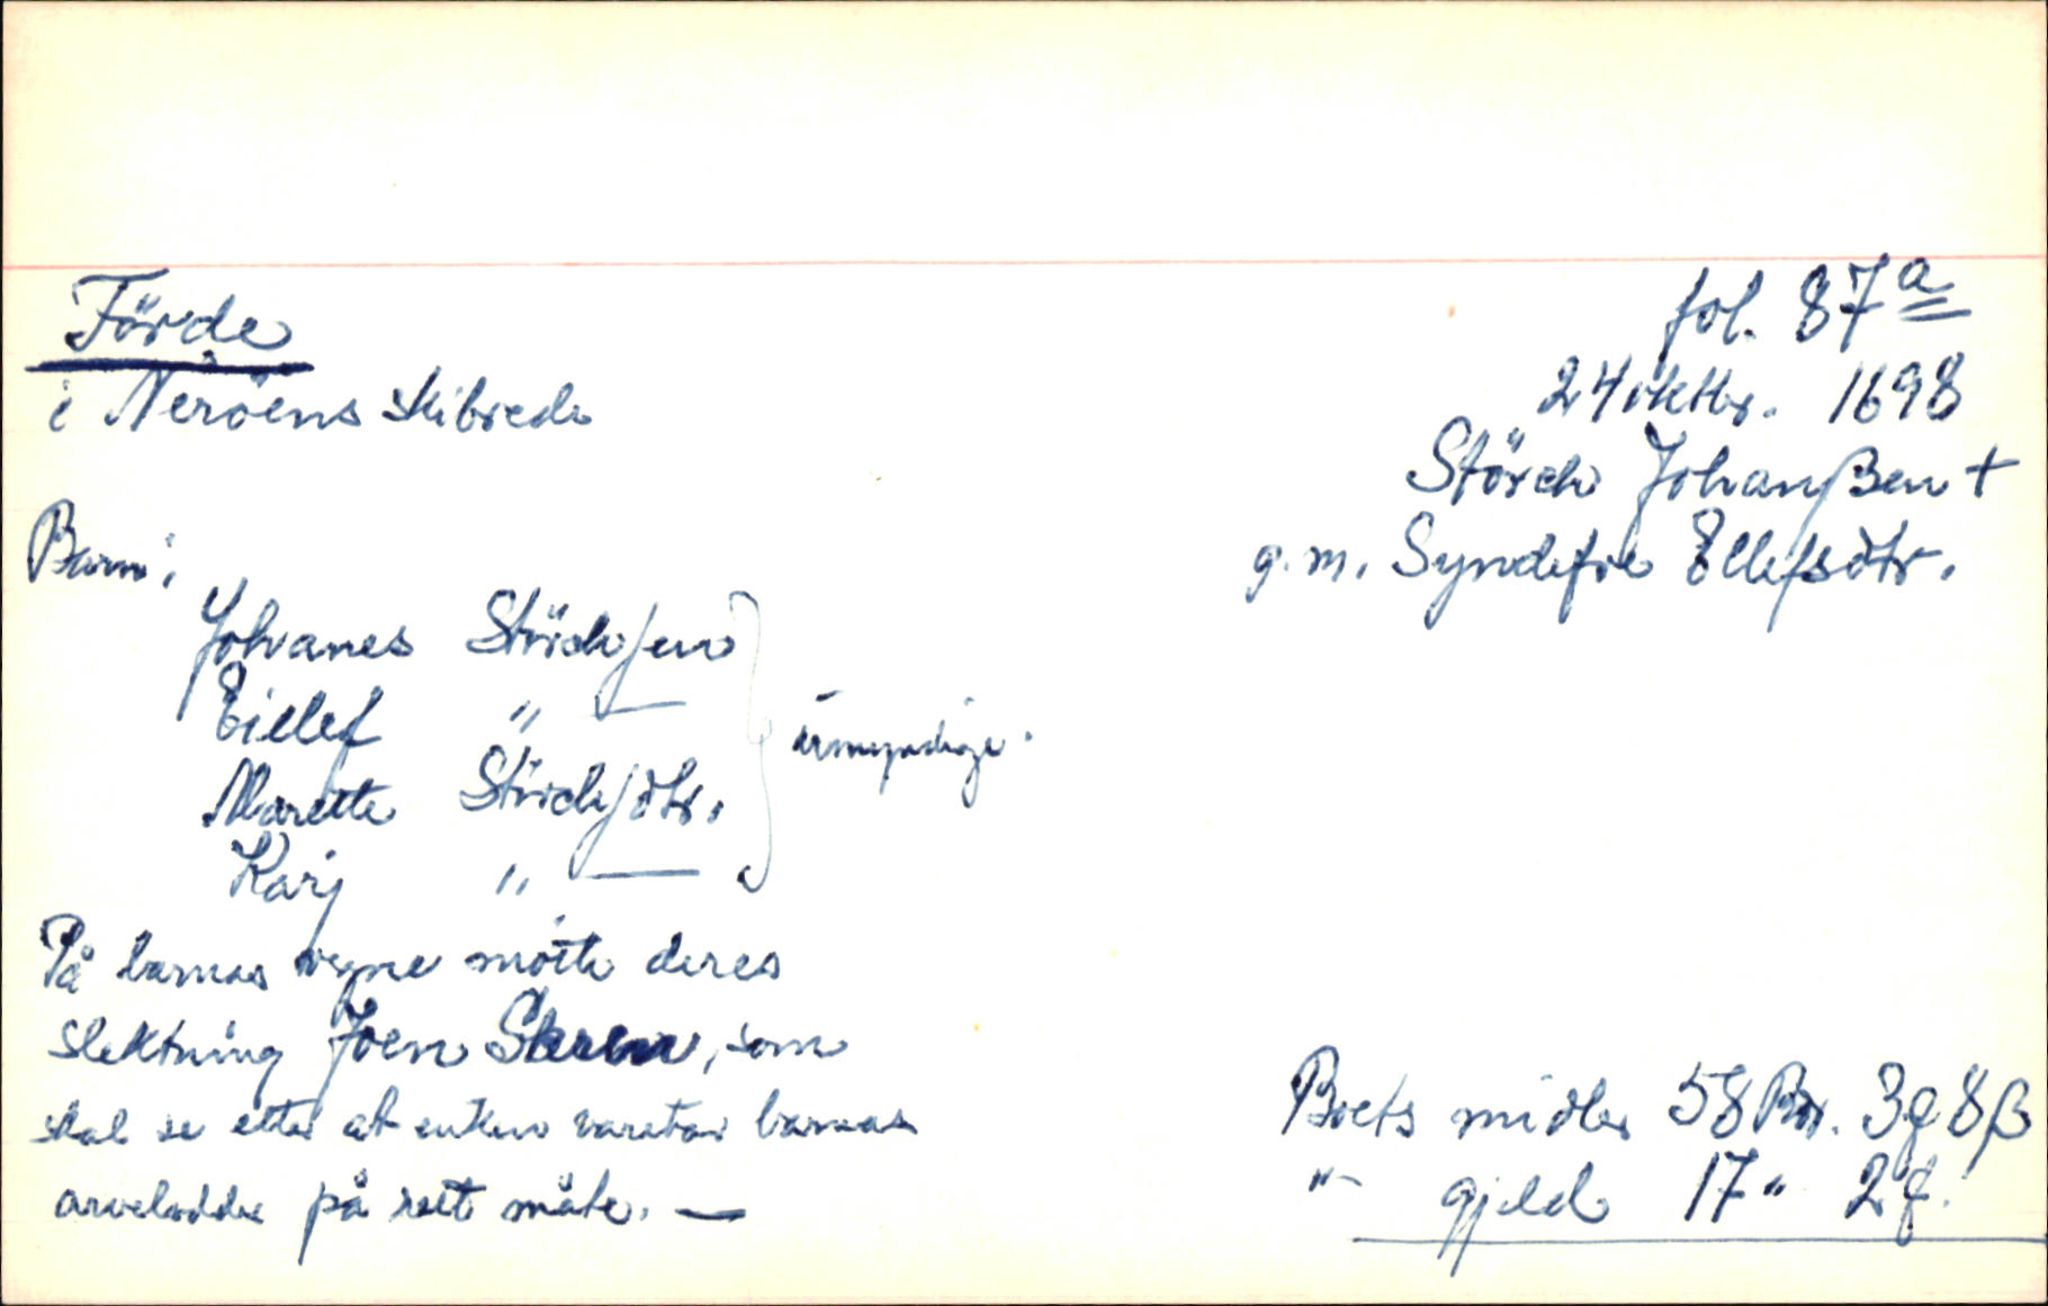 Förde
i Neröens skibrede
fol. 87a
24 oktbr. 1698
Störch Johanßen +
g. m. Syndefre Ellefsdtr.
Barn:
Johanes Störchsen
Eilef " —
Marette Störchsdtr.
Karj " —
umyndige.
På barnas vegne møtte deres
slektning Joen Skrem, som
skal se etter at enken varetar barnas
arvelodder på rett måte. —
Boets midler 58 Rdr. 3 q 8 ß
" - gjeld 17 " 2 q.